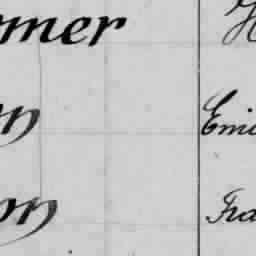 mer H
on Emi
on Fra